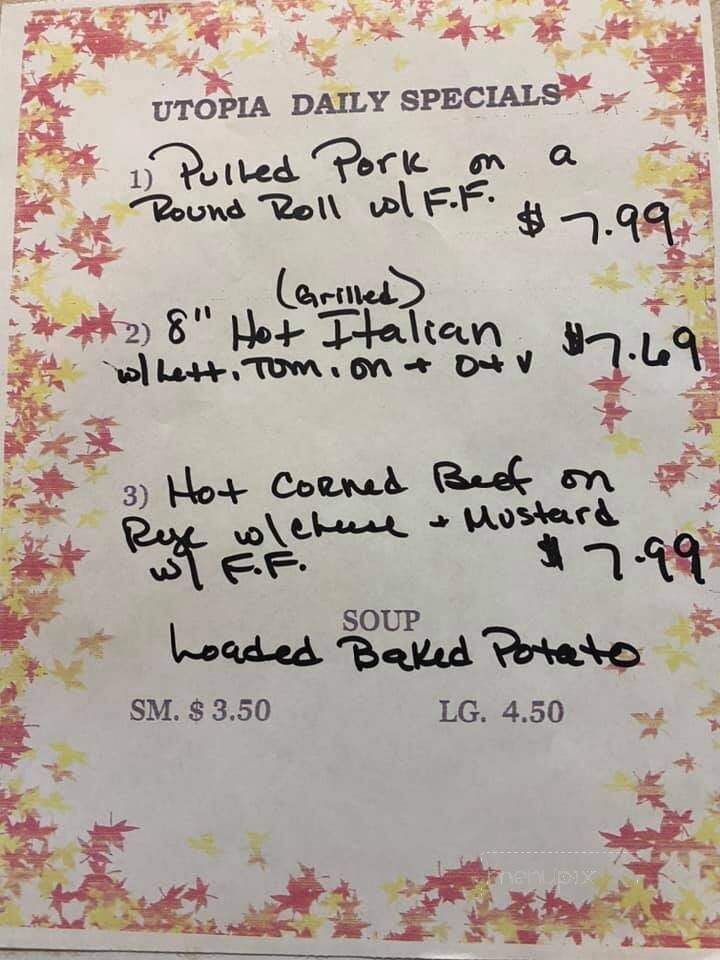 UTOPIA DAILY SPECIALS
1) Pulled Pork on a
Round Roll w/ F.F.
$ 7.99
(Grilled)
2) 8" Hot Italian $7.69
w/ Lett, Tom, on + O+V
3) Hot Corned Beef on
Rye w/ cheese + Mustard
w/ F.F. $ 7.99
SOUP
Loaded Baked Potato
SM. $ 3.50 LG. 4.50
menupix